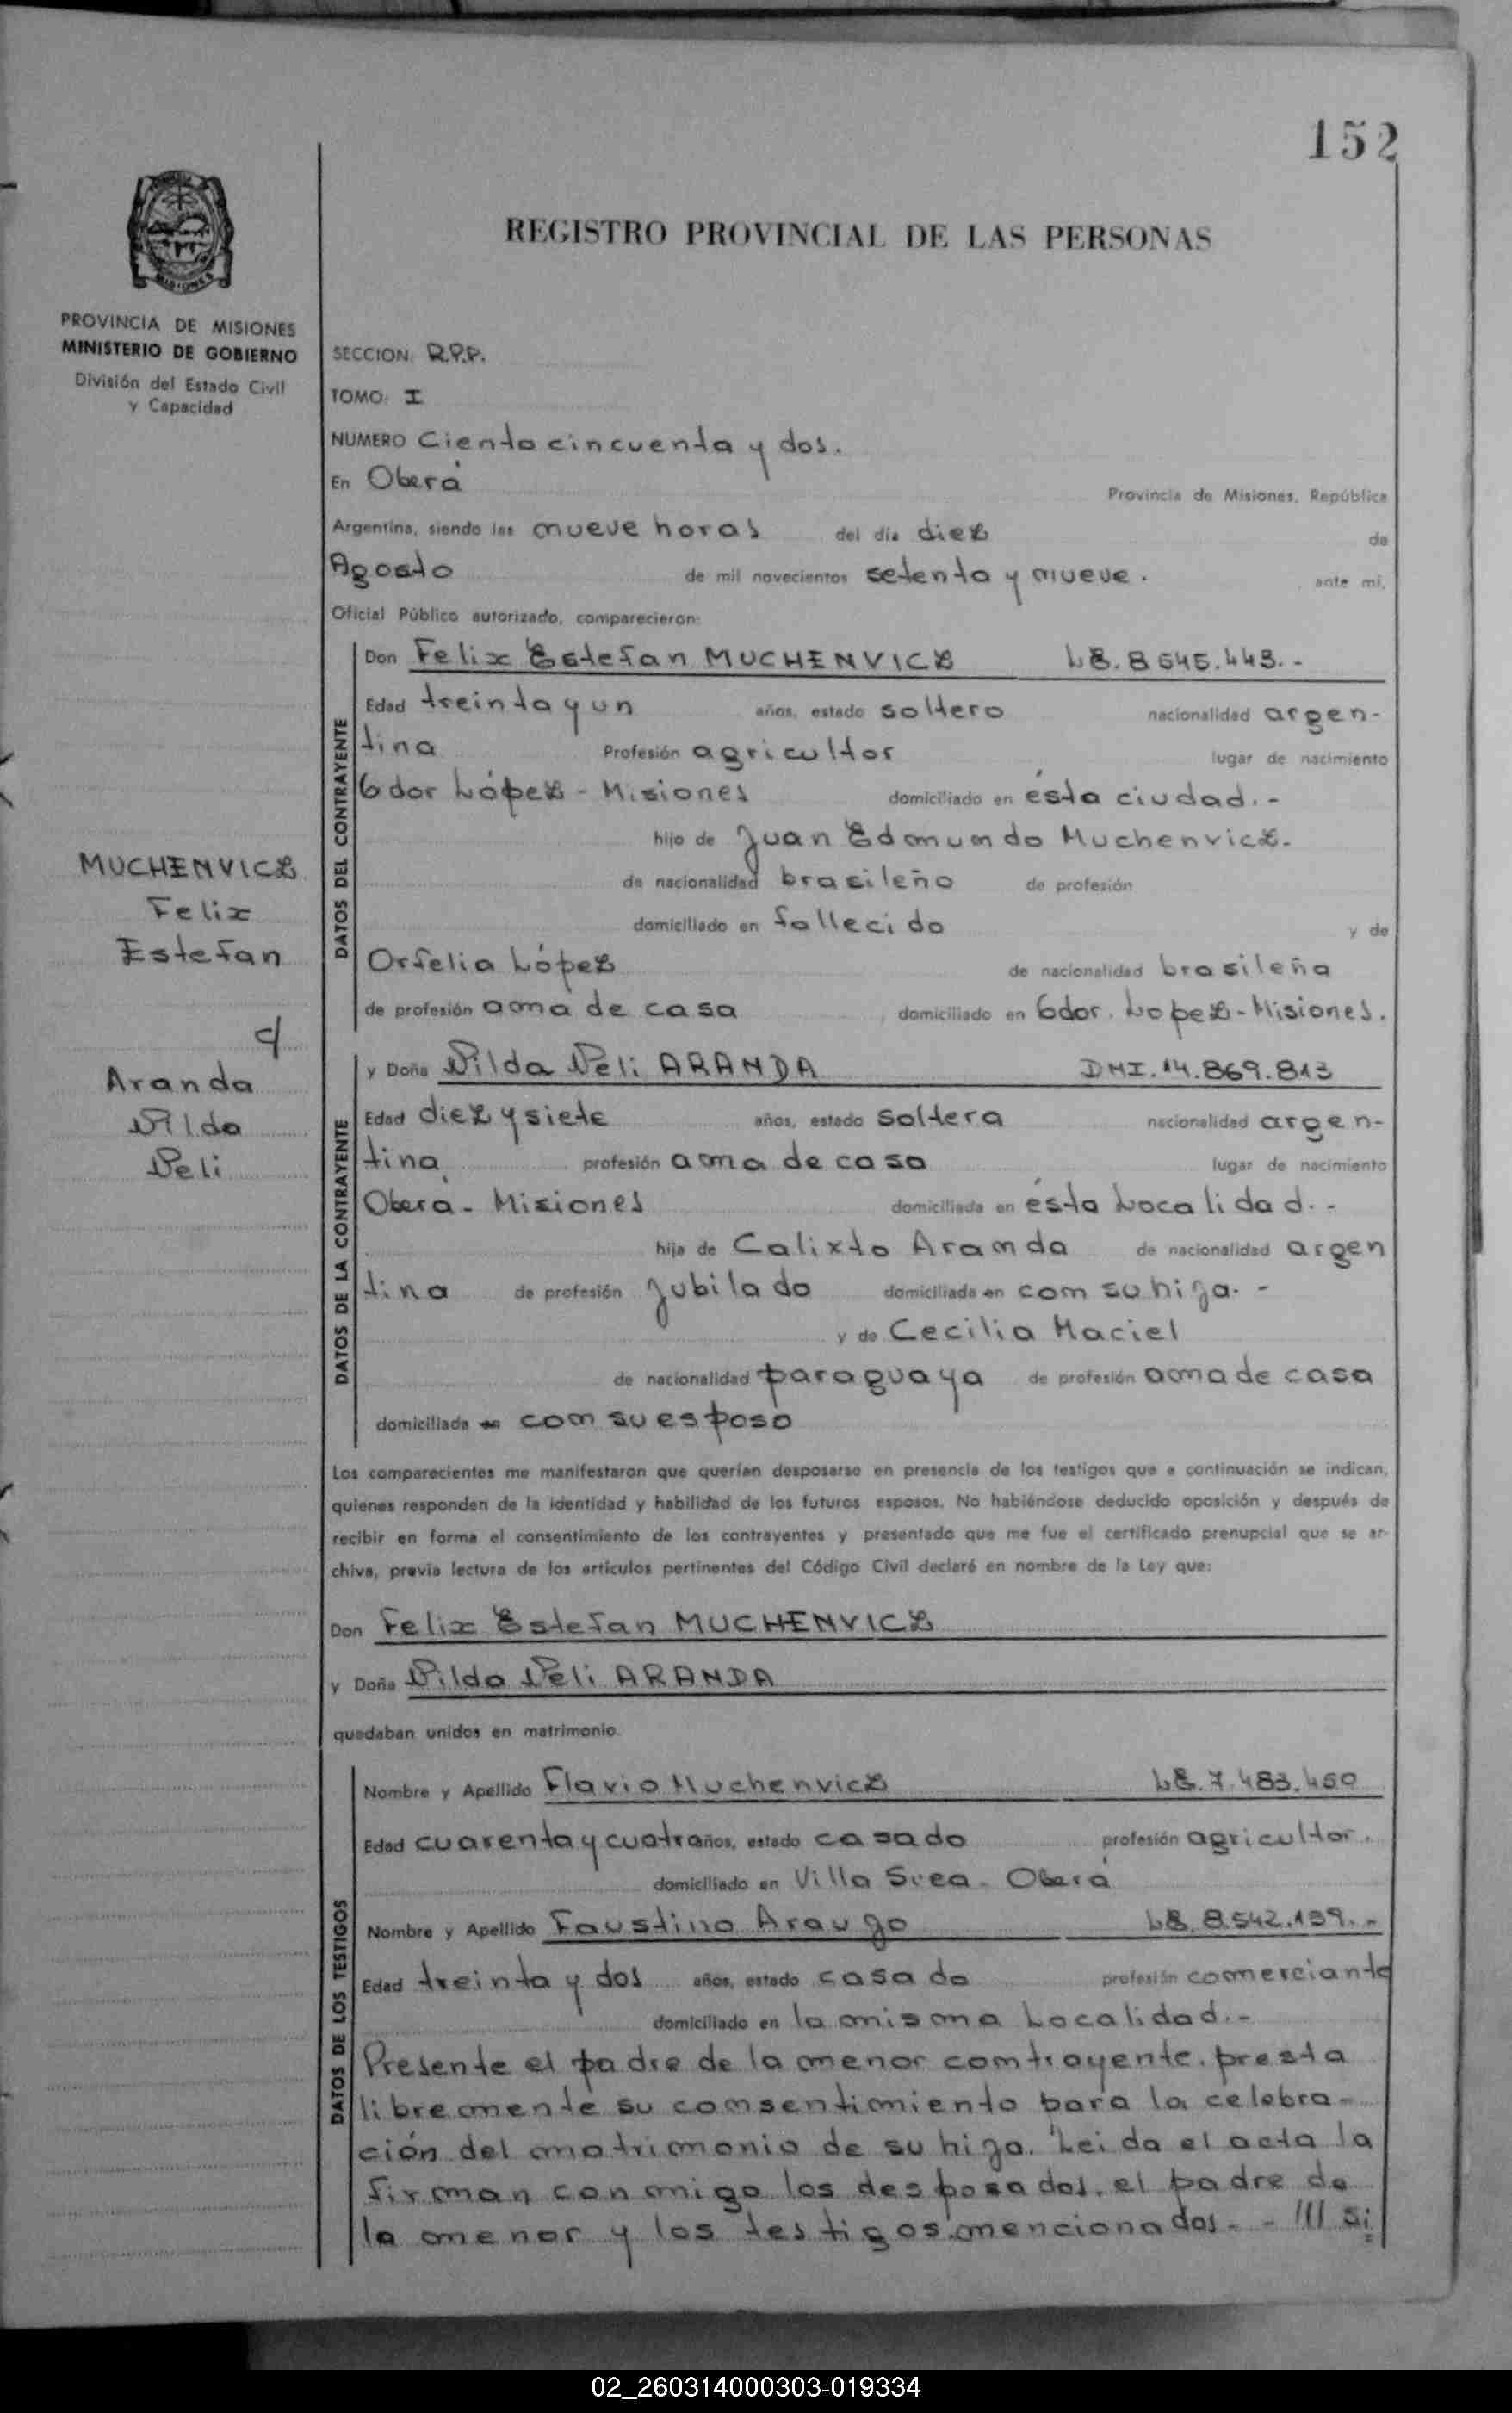 152
REGISTRO PROVINCIAL DE LAS PERSONAS
MISIONES
PROVINCIA DE MISIONES
MINISTERIO DE GOBIERNO
División del Estado Civil
y Capacidad
SECCION: R.P.P.
TOMO: I
NUMERO Ciento cincuenta y dos.
En Oberá
Provincia de Misiones, República
Argentina, siendo las nueve horas del día diez de
Agosto de mil novecientos setenta y nueve. ante mi,
Oficial Público autorizado, comparecieron:
DATOS DEL CONTRAYENTE
Don Felix Estefan MUCHENVICZ LE. 8.545.443.-
Edad treinta y un años, estado soltero nacionalidad argen-
tina Profesión agricultor lugar de nacimiento
Gdor López - Misiones domiciliado en ésta ciudad. -
hijo de Juan Edmundo Muchenvicz.
de nacionalidad brasileño de profesión
domiciliado en fallecido y de
Orfelia López de nacionalidad brasileña
de profesión ama de casa domiciliado en Gdor. Lopez - Misiones.
MUCHENVICZ
Felix
Estefan
c/
Aranda
Nilda
Neli
DATOS DE LA CONTRAYENTE
y Doña Nilda Neli ARANDA DNI. 14.869.813
Edad diez y siete años, estado soltera nacionalidad argen-
tina profesión ama de casa lugar de nacimiento
Oberá - Misiones domiciliada en ésta Localidad. -
hija de Calixto Aranda de nacionalidad argen
tina de profesión Jubilado domiciliada en con su hija. -
y de Cecilia Maciel
de nacionalidad paraguaya de profesión ama de casa
domiciliada en con su esposo
Los comparecientes me manifestaron que querían desposarse en presencia de los testigos que a continuación se indican,
quienes responden de la identidad y habilidad de los futuros esposos. No habiéndose deducido oposición y después de
recibir en forma el consentimiento de los contrayentes y presentado que me fue el certificado prenupcial que se ar-
chiva, previa lectura de los artículos pertinentes del Código Civil declaré en nombre de la Ley que:
Don Felix Estefan MUCHENVICZ
y Doña Nilda Neli ARANDA
quedaban unidos en matrimonio.
DATOS DE LOS TESTIGOS
Nombre y Apellido Flavio Muchenvicz LE. 7.483.450
Edad cuarenta y cuatro años, estado casado profesión agricultor.
domiciliado en Villa Svea - Oberá
Nombre y Apellido Faustino Araujo LE 8.542.139.-
Edad treinta y dos años, estado casado profesión comerciante
domiciliado en la misma Localidad. -
Presente el padre de la menor contrayente. presta
libremente su consentimiento para la celebra-
ción del matrimonio de su hija. Leida el acta la
firman conmigo los desposados, el padre de
la menor y los testigos mencionados. - /// Si
02_260314000303-019334